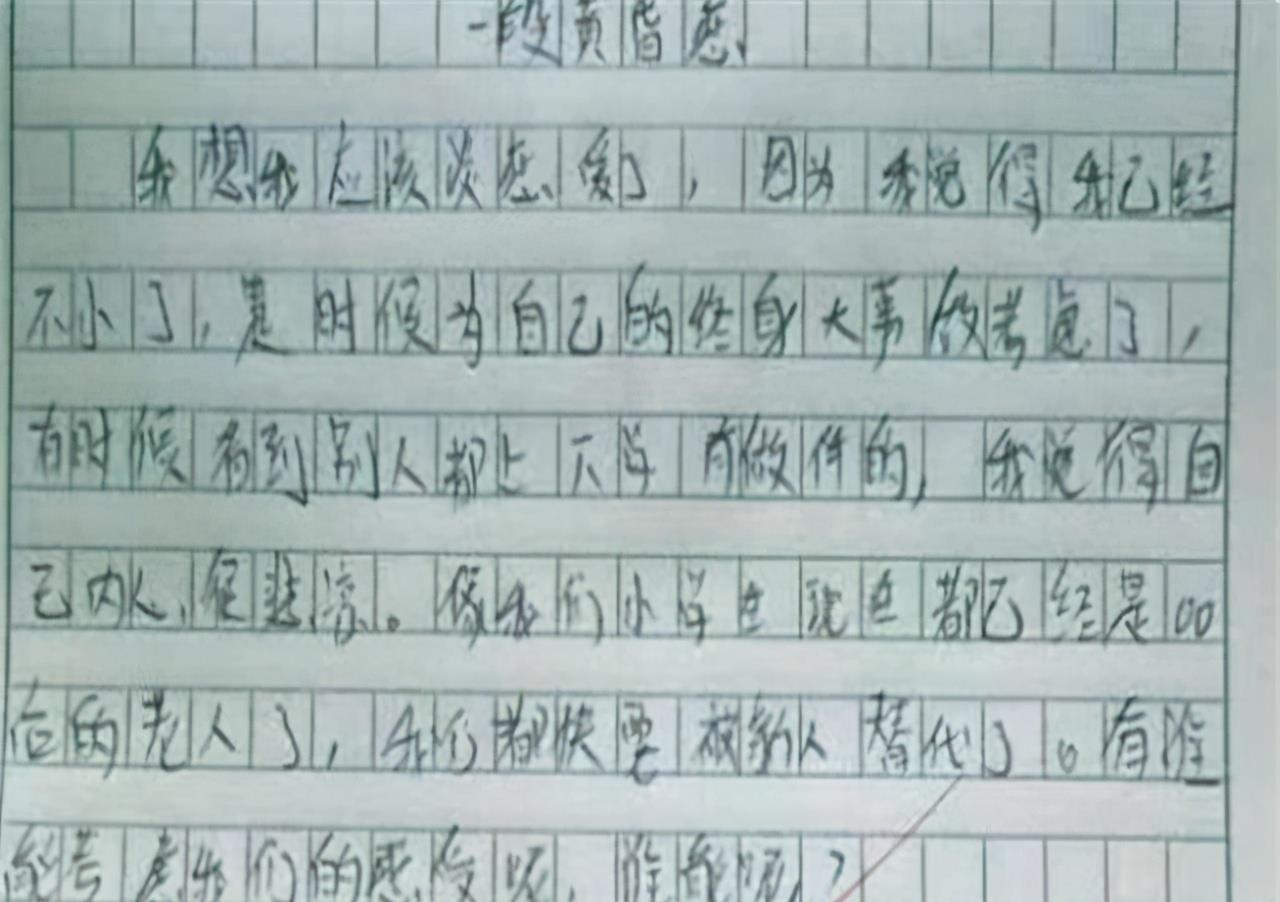 一段黄昏恋
我想我应该谈恋爱了,因为我觉得我已经
不小了,是时候为自己的终身大事做考虑了,
有时候看到别人都上下学有做伴的,我觉得自
己内心很悲凉。像我们小学生现在都已经是00
后的老人了,我们都快要被新人替代了。有谁
能考虑我们的感受呢,谁能呢?